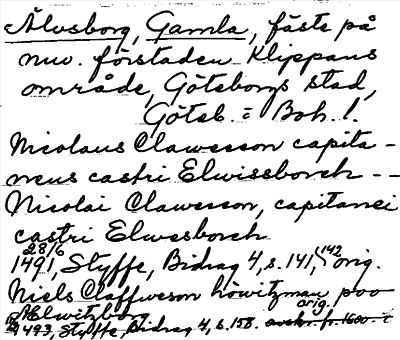 Älvsborg, Gamla, fäste på
nuv. förstaden Klippans
område, Göteborgs stad,
Göteb. o Boh. l.
Nicolaus Clawesson capita-
neus castri Elwissborch --
Nicolai Clawesson, capitanei
castri Elwesborch
28/6 1491, Styffe, Bidrag 4, s. 141, 142 orig.
Niels Claffweson höwitzman poo
Ælwitzborg
1493, Styffe, Bidrag 4, s. 158. orig.